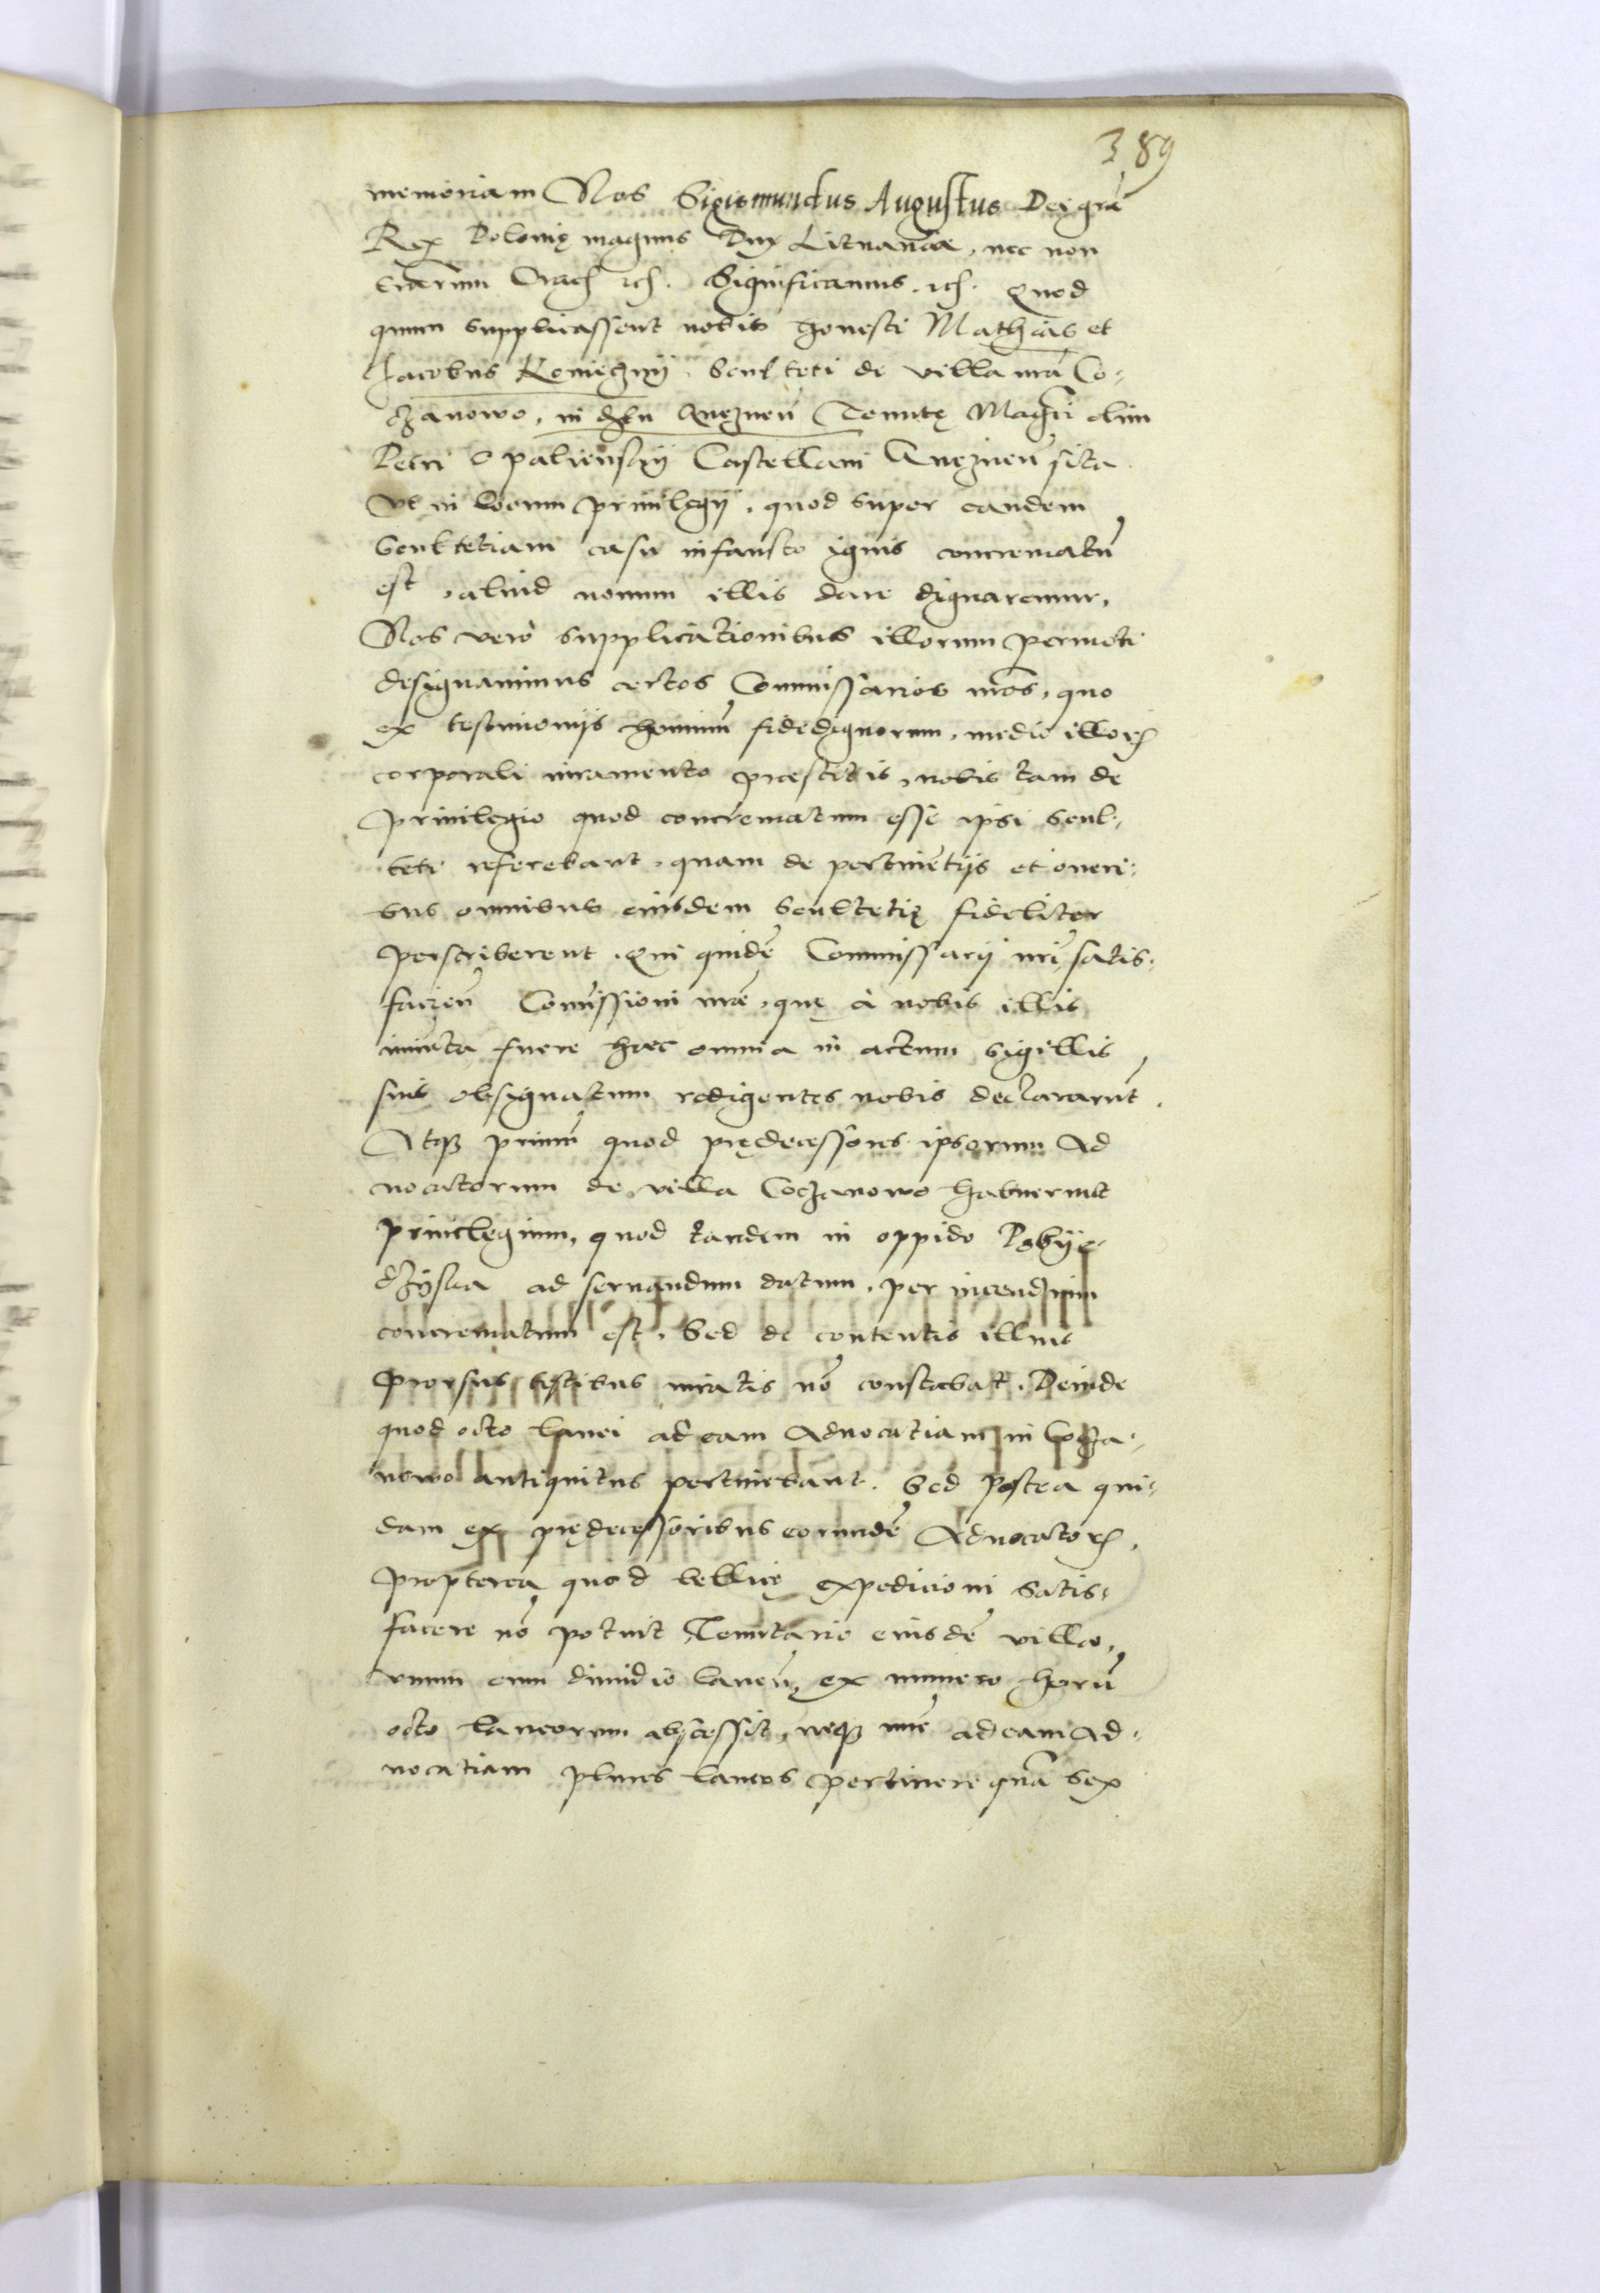 389
memoriam Nos Sigismundus Augustus Dei gra
Rex Polonię magnus Dux Lituaniæ, nec non
terrarum Crach etc. Significamus. etc. Quod
quum supplicassent nobis honesti Mathias et
Jacobus Konieczny. Scul teti de villa nra Co-
czanowo, in Gneznen Tenutę Magci olim
Petri Opalienskij Castellani Gneznen sita
Vt in locum privilegij, quod super eandem
Scultetiam casu infausto ignis concrematu
est, aliud novum illis dare dignaremur,
Nos vero supplicationibus illorum permoti
designavimus certos Commissarios nros, quo
ex testimonijs hominu fidedignorum, medio illoru
corporali iuramento præstitis, nobis tam de
privilegio quod concrematum esse ipsi Scul-
teti referebant, quam de pertinetijs et oneri-
bus omnibus eiusdem Scultetię fideliter
perscriberent. Qui quide Commissarij nri satis-
facien Comissioni nræ, quę à nobis illis
iniucta fuere hæc omnia in actum sigillis
suis obsignatum redigentes nobis declararut.
Atq primu quod prędecessores ipsorum Ad
uocatorum de villa Coczanowo habuerint
privilegium, quod tandem in oppido Pobye-
dzyska ad seruandum datum, per incendium
concrematum est. Sed de contentis illius
prorsus testibus iuratis no constabat. Deinde
quod octo lanei ad eam Aduocatiam in Cocza-
nowo antiquitus pertinebant. Sed Postea qui-
dam ex prędecessoribus eorunde Aduocatoru,
propterea quod bellicę expeditioni Satis-
facere no potuit Tenutario eiusde villæ,
vnum cum dimidio laneu ex numero horu
octo laneorum abscessit, neq nuc ad eam Ad-
uocatiam plures laneos pertinere qua Sex